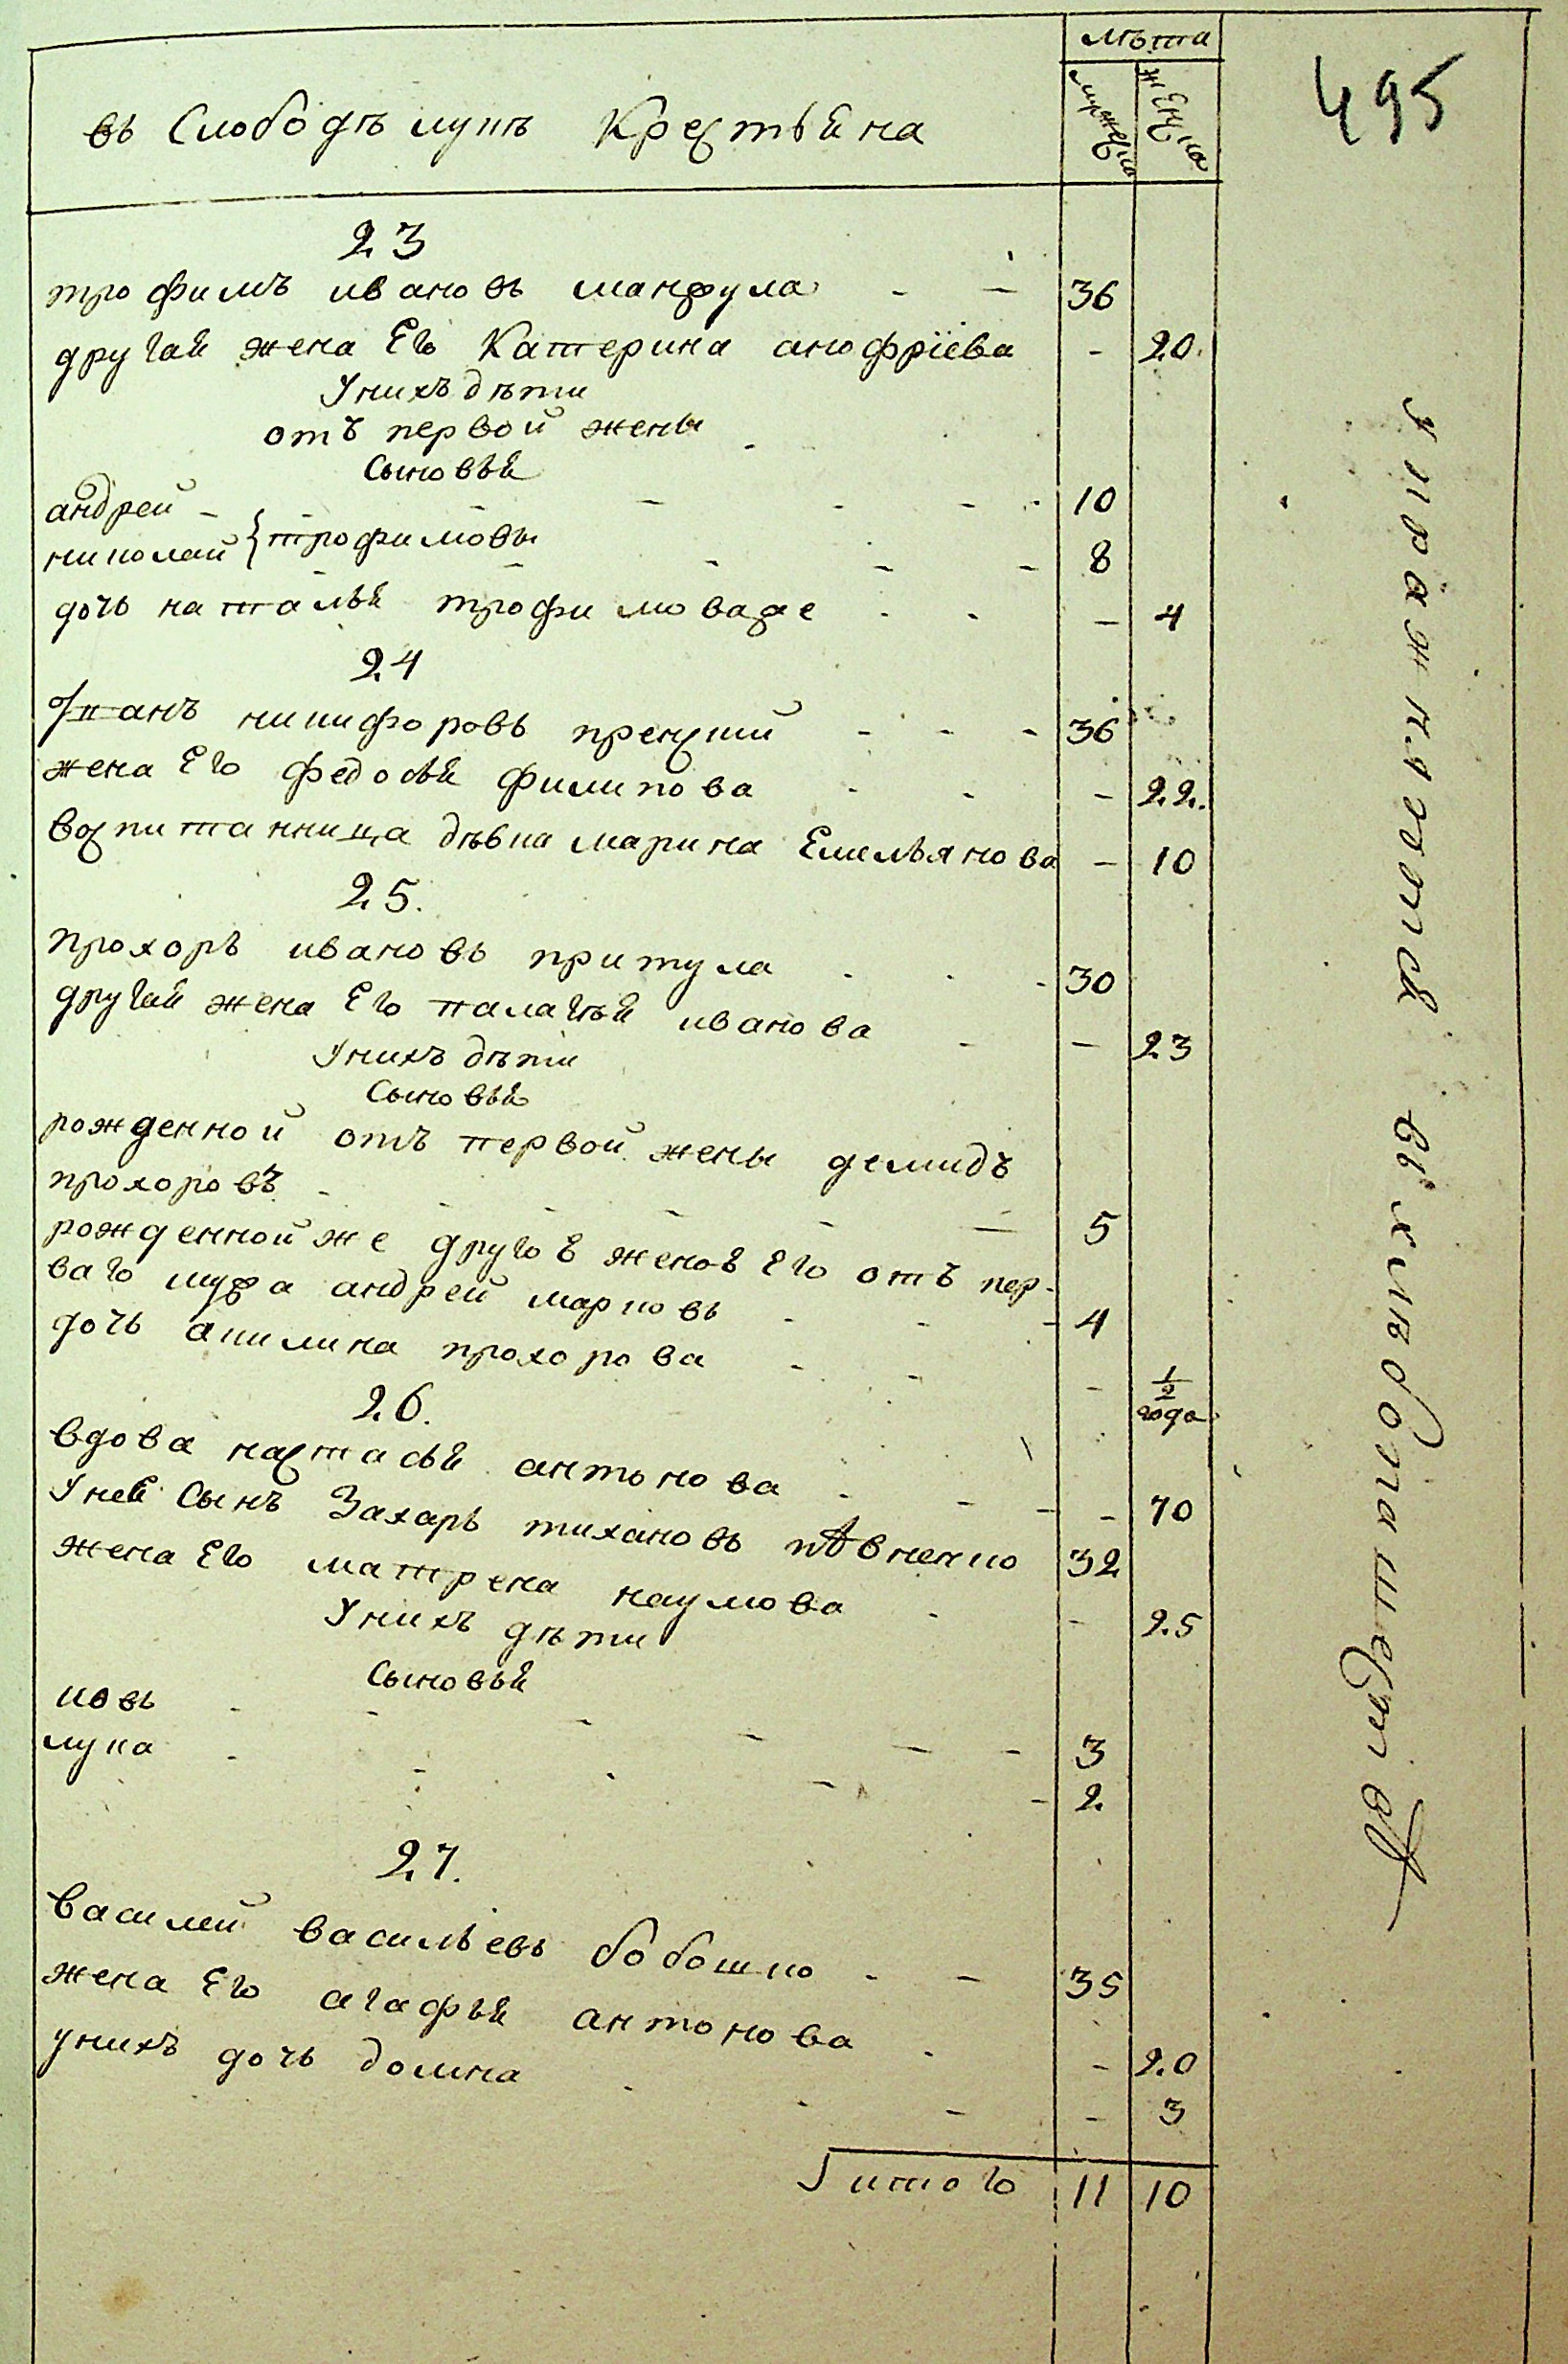 495
въ Слободѣ лукѣ Крестьяна
лѣта
мужеска
женска
23
трофимъ ивановъ манжула - - 36
другая жена Его Катерина анофріева - 20
У нихъ дѣти
отъ первой жены
Сыновья
андрей - - - - 10
николай } трофимовы - - - - 8
дочь наталья трофимова же - - - 4
24
никифоровъ - - - 36
жена Его федосья филипова - - - 22.
воспитанница дѣвка марина Емельянова - 10
25.
прохоръ ивановъ притула - - - 30
другая жена Его палагѣя иванова - - 23
У нихъ дѣти
Сыновья
рожденной отъ первой жены демидъ
прохоровъ - - - - - 5
рожденной же другоѣ женоѣ Его отъ пер-
ваго мужа андрей марковъ - - - 4
дочь акилина прохорова - - - 1/2 года
26.
вдова настасья антонова - - - - 70
У неѣ Сынъ Захаръ тихановъ 32
жена Его матрена наумова - - 25
У нихъ дѣти
Сыновья
иовъ - - - - - - 3
лука - - - - - 2
27.
василей васильевъ бобошко - - 35
жена Его агафья антонова - - 20
у нихъ дочь домна - - - - 3
итого 11 10
въ